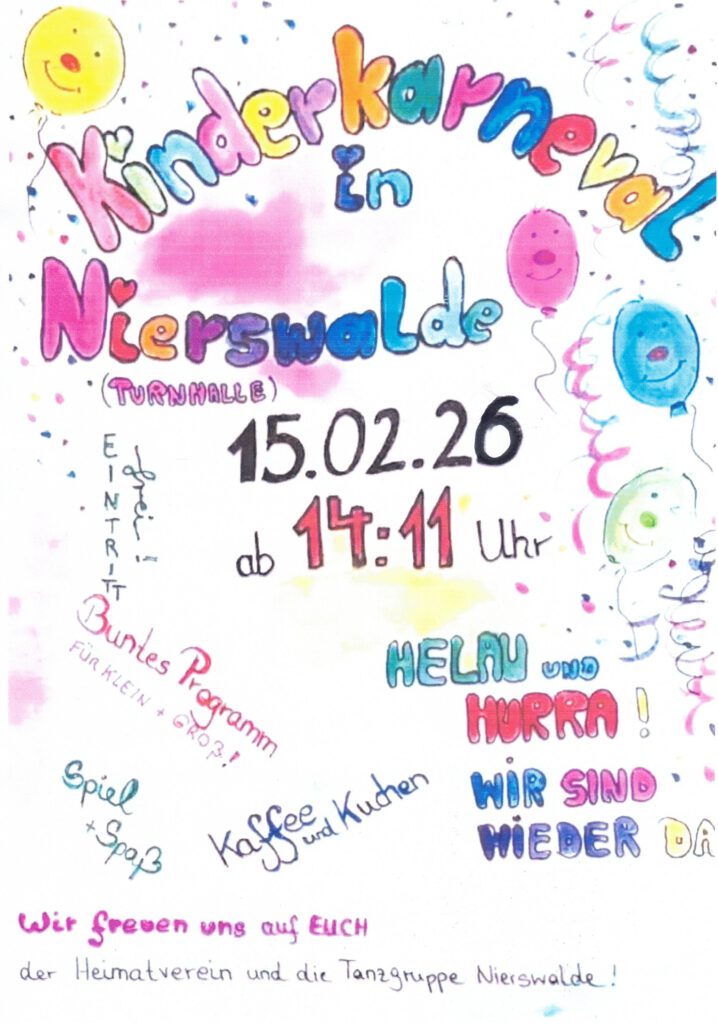 Kinderkarneval
in
Nierswalde
(TURNHALLE)
15.02.26
ab 14:11 Uhr
EINTRITT
frei!
Buntes Programm
FÜR KLEIN + GROß!
HELAU UND
HURRA!
WIR SIND
WIEDER DA
Spiel
+ Spaß
Kaffee
und Kuchen
Wir freuen uns auf EUCH
der Heimatverein und die Tanzgruppe Nierswalde!